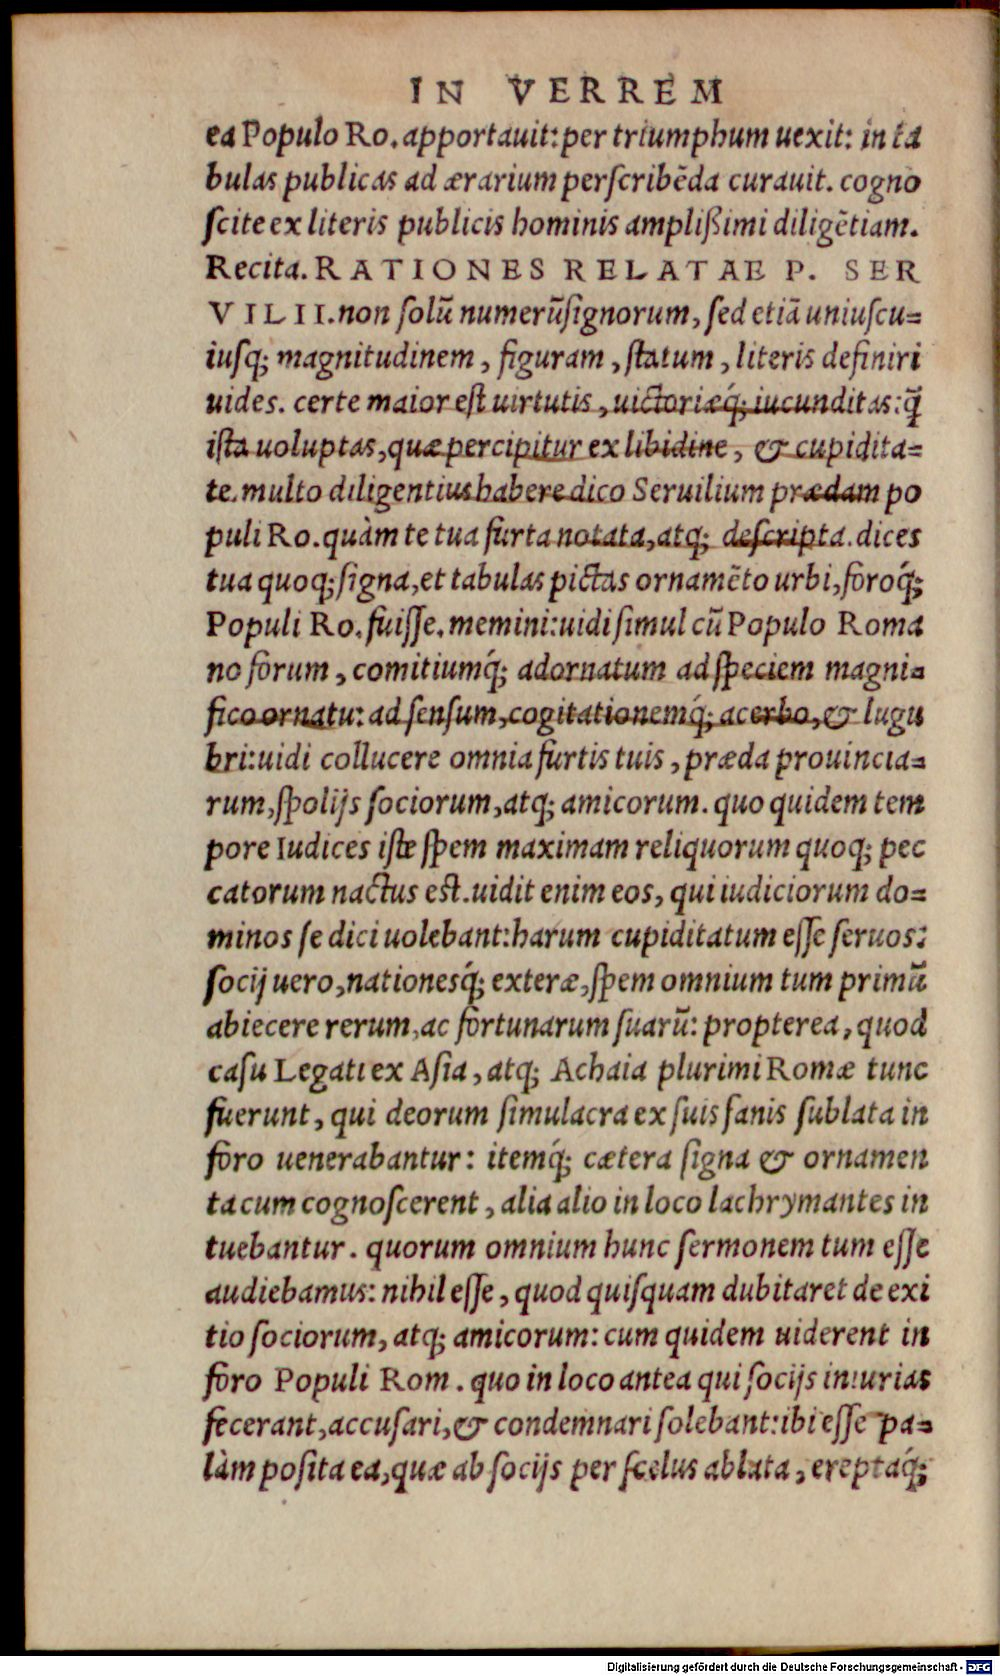 IN VERREM
ea Populo Ro. apportauit: per triumphum uexit: in ta
bulas publicas ad ærarium perscribēda curauit. cogno
scite ex literis publicis hominis amplißimi diligētiam.
Recita. RATIONES RELATAE P. SER
VILII. non solū numerū signorum, sed etiā uniuscu=
iusq; magnitudinem, figuram, statum, literis definiri
uides. certe maior est uirtutis, uictoriæq́; iucunditas: q̃
ista uoluptas, quæ percipitur ex libidine, & cupidita=
te. multo diligentius habere dico Seruilium prædam po
puli Ro. quàm te tua furta notata, atq; descripta. dices
tua quoq; signa, et tabulas pictas ornamēto urbi, foroq́;
Populi Ro. fuisse. memini: uidi simul cū Populo Roma
no forum, comitiumq́; adornatum ad speciem magni=
fico ornatu: ad sensum, cogitationemq́; acerbo, & lugu
bri: uidi collucere omnia furtis tuis, præda prouincia=
rum, spolijs sociorum, atq; amicorum. quo quidem tem
pore Iudices iste spem maximam reliquorum quoq; pec
catorum nactus est. uidit enim eos, qui iudiciorum do=
minos se dici uolebant: harum cupiditatum esse seruos:
socij uero, nationesq́; exteræ, spem omnium tum primū
abiecere rerum, ac fortunarum suarū: propterea, quod
casu Legati ex Asia, atq; Achaia plurimi Romæ tunc
fuerunt, qui deorum simulacra ex suis fanis sublata in
foro uenerabantur: itemq́; cætera signa & ornamen
ta cum cognoscerent, alia alio in loco lachrymantes in
tuebantur. quorum omnium hunc sermonem tum esse
audiebamus: nihil esse, quod quisquam dubitaret de exi
tio sociorum, atq; amicorum: cum quidem uiderent in
foro Populi Rom. quo in loco antea qui socijs iniurias
fecerant, accusari, & condemnari solebant: ibi esse pa=
làm posita ea, quæ ab socijs per scelus ablata, ereptaq́;
Digitalisierung gefördert durch die Deutsche Forschungsgemeinschaft - DFG